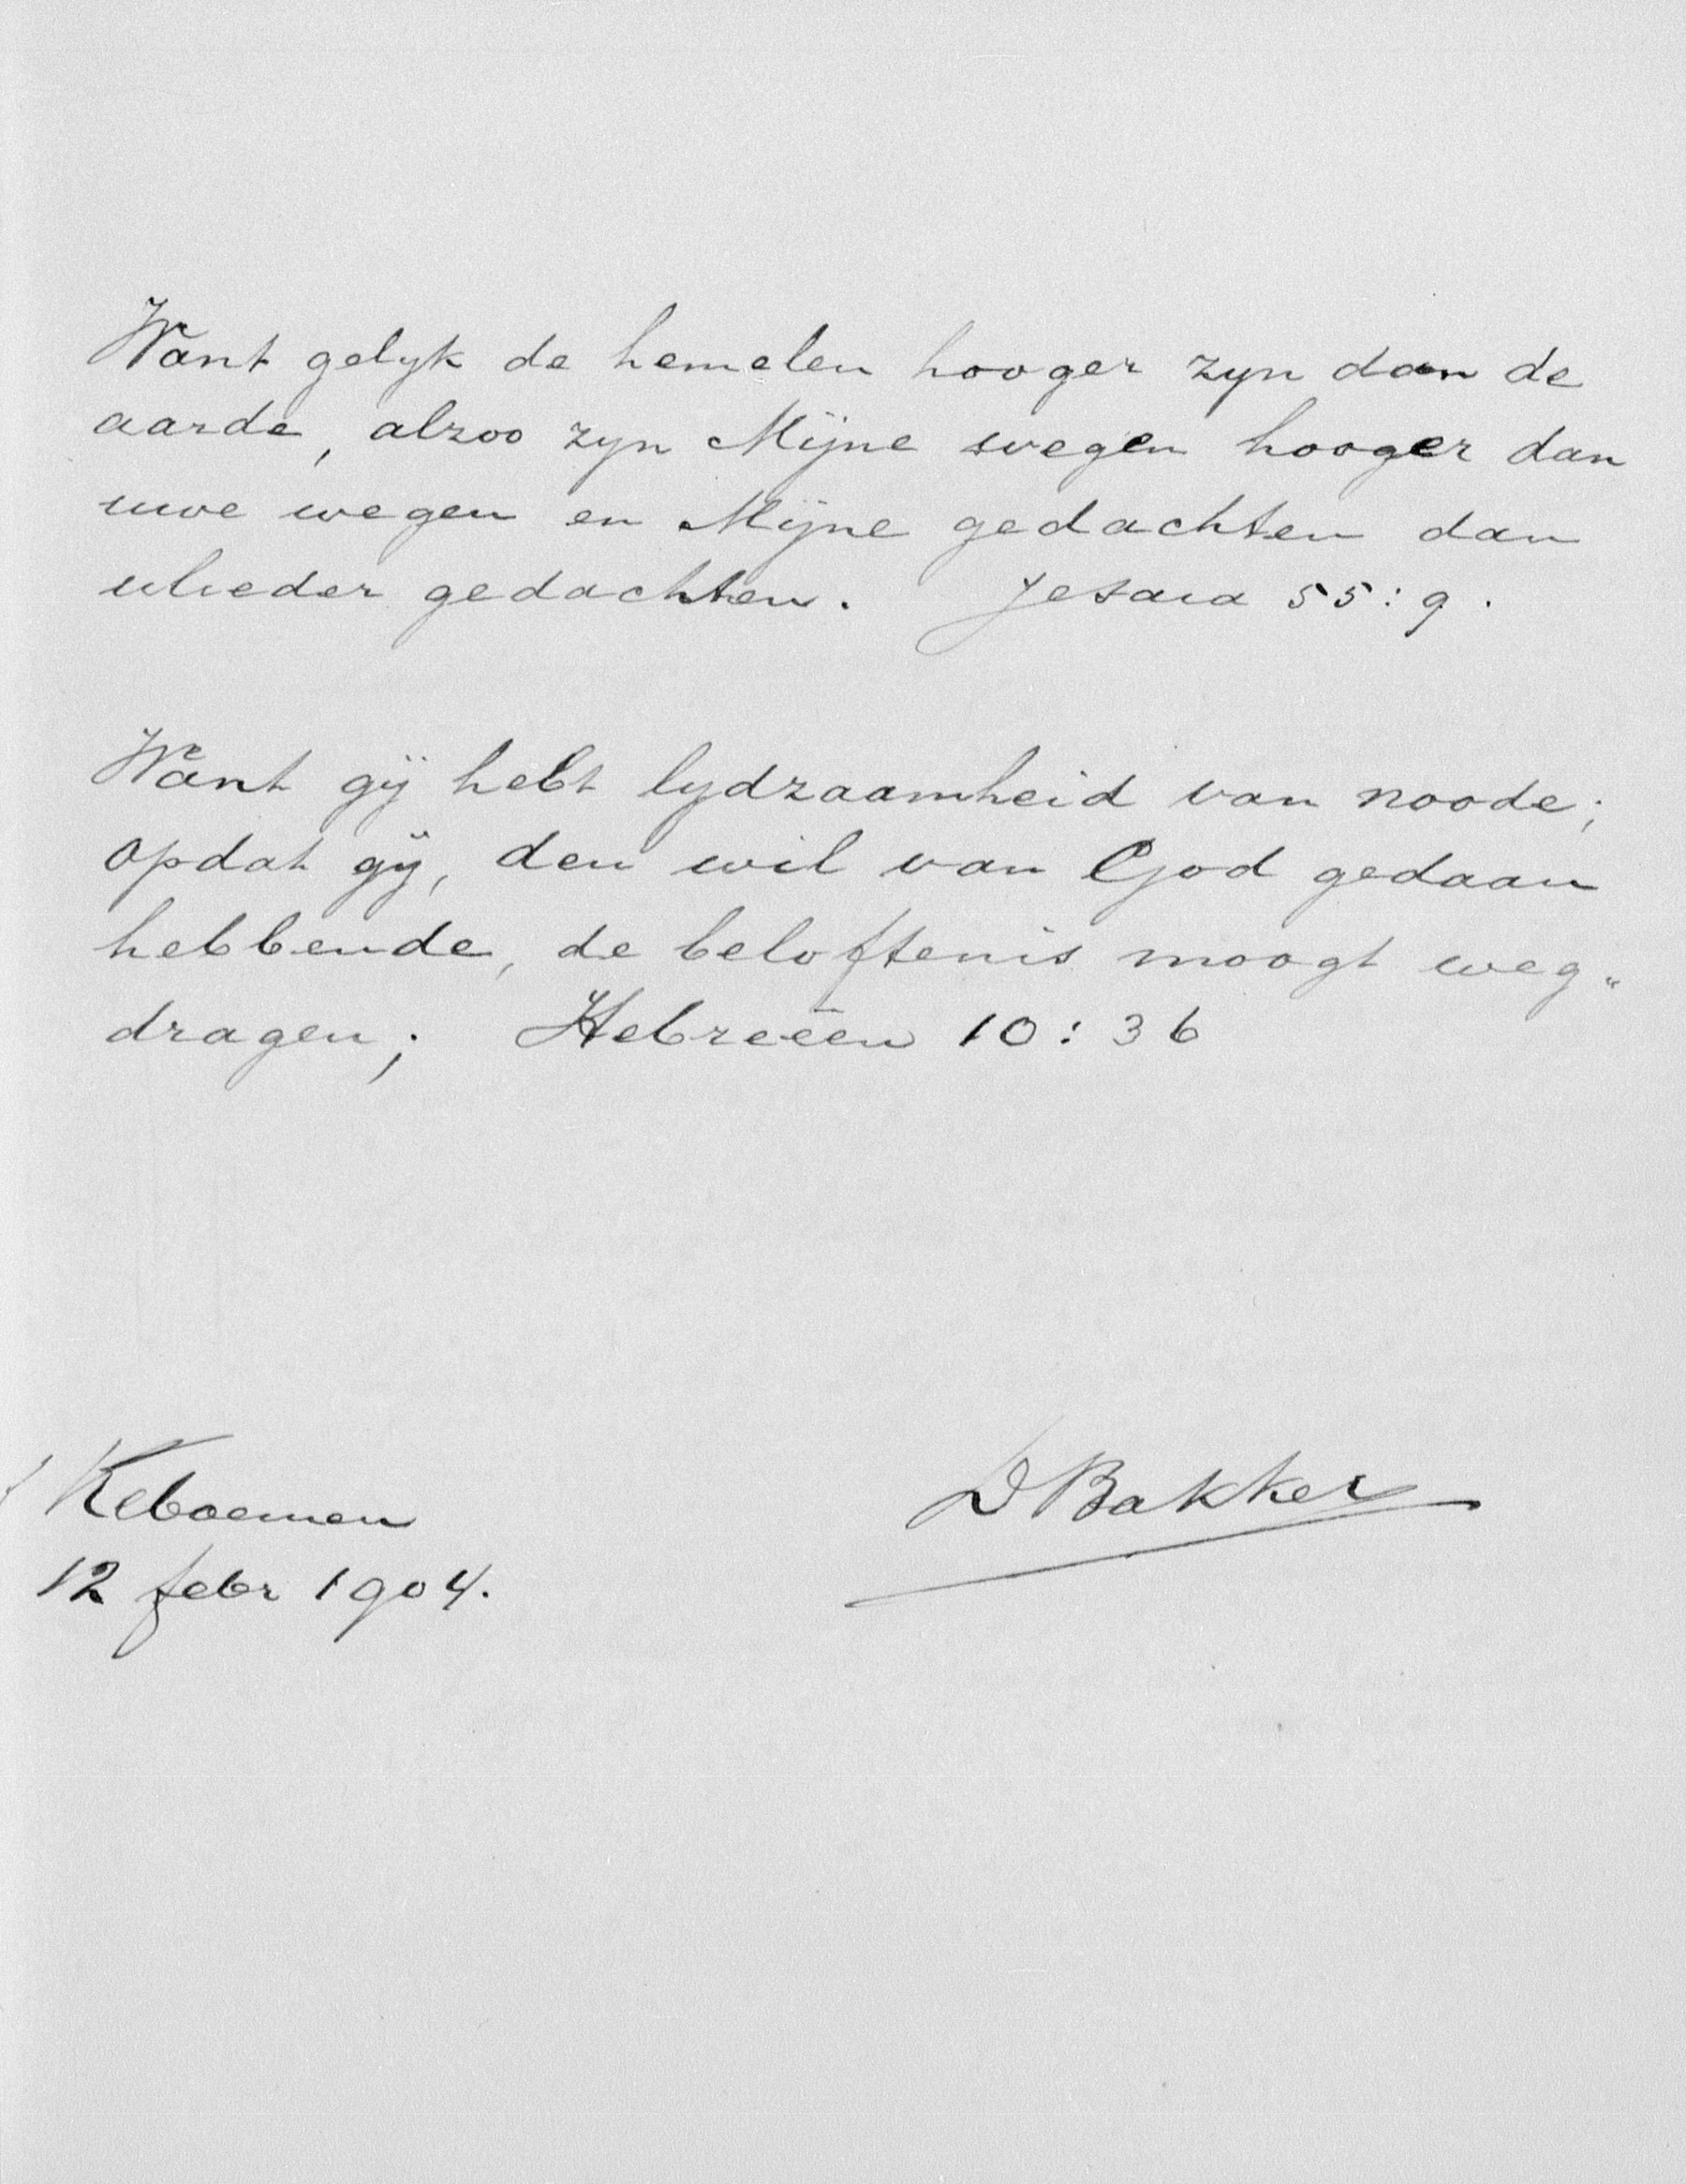 Want gelyk de hemelen hooger zyn dan de
aarde, alzoo zyn Mijne wegen hooger dan
uwe wegen en Mijne gedachten dan
ulieder gedachten. Jesaia 55:9.
Want gij hebt lydzaamheid van noode;
opdat gij, den wil van God gedaan
hebbende, de beloftenis moogt weg„
dragen; Hebreeën 10:36
Keboemen
12 febr 1904.
D Bakker